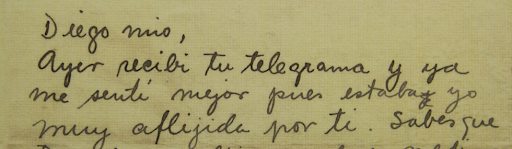 Diego mio,
Ayer recibi tu telegrama y ya
me sentí mejor pues estaba yo
muy aflijida por ti. Sabes que